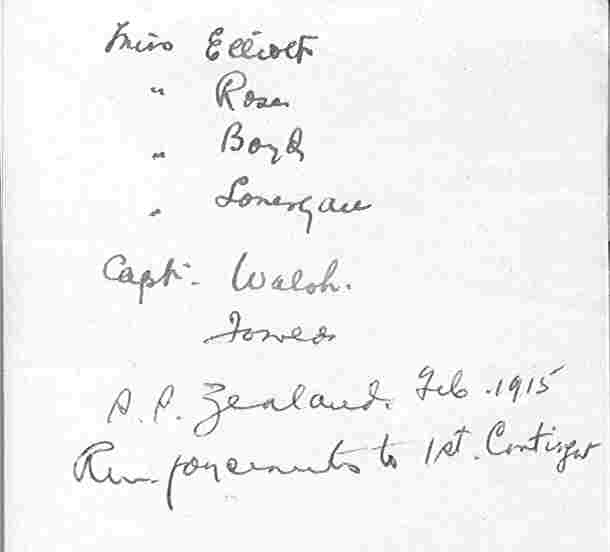 Miss Elliott
" Ross
" Boyd
" Lonergan
Capt. Walsh.
S.S. Zealand. Feb. 1915
Reinforcements to 1st. Contingent